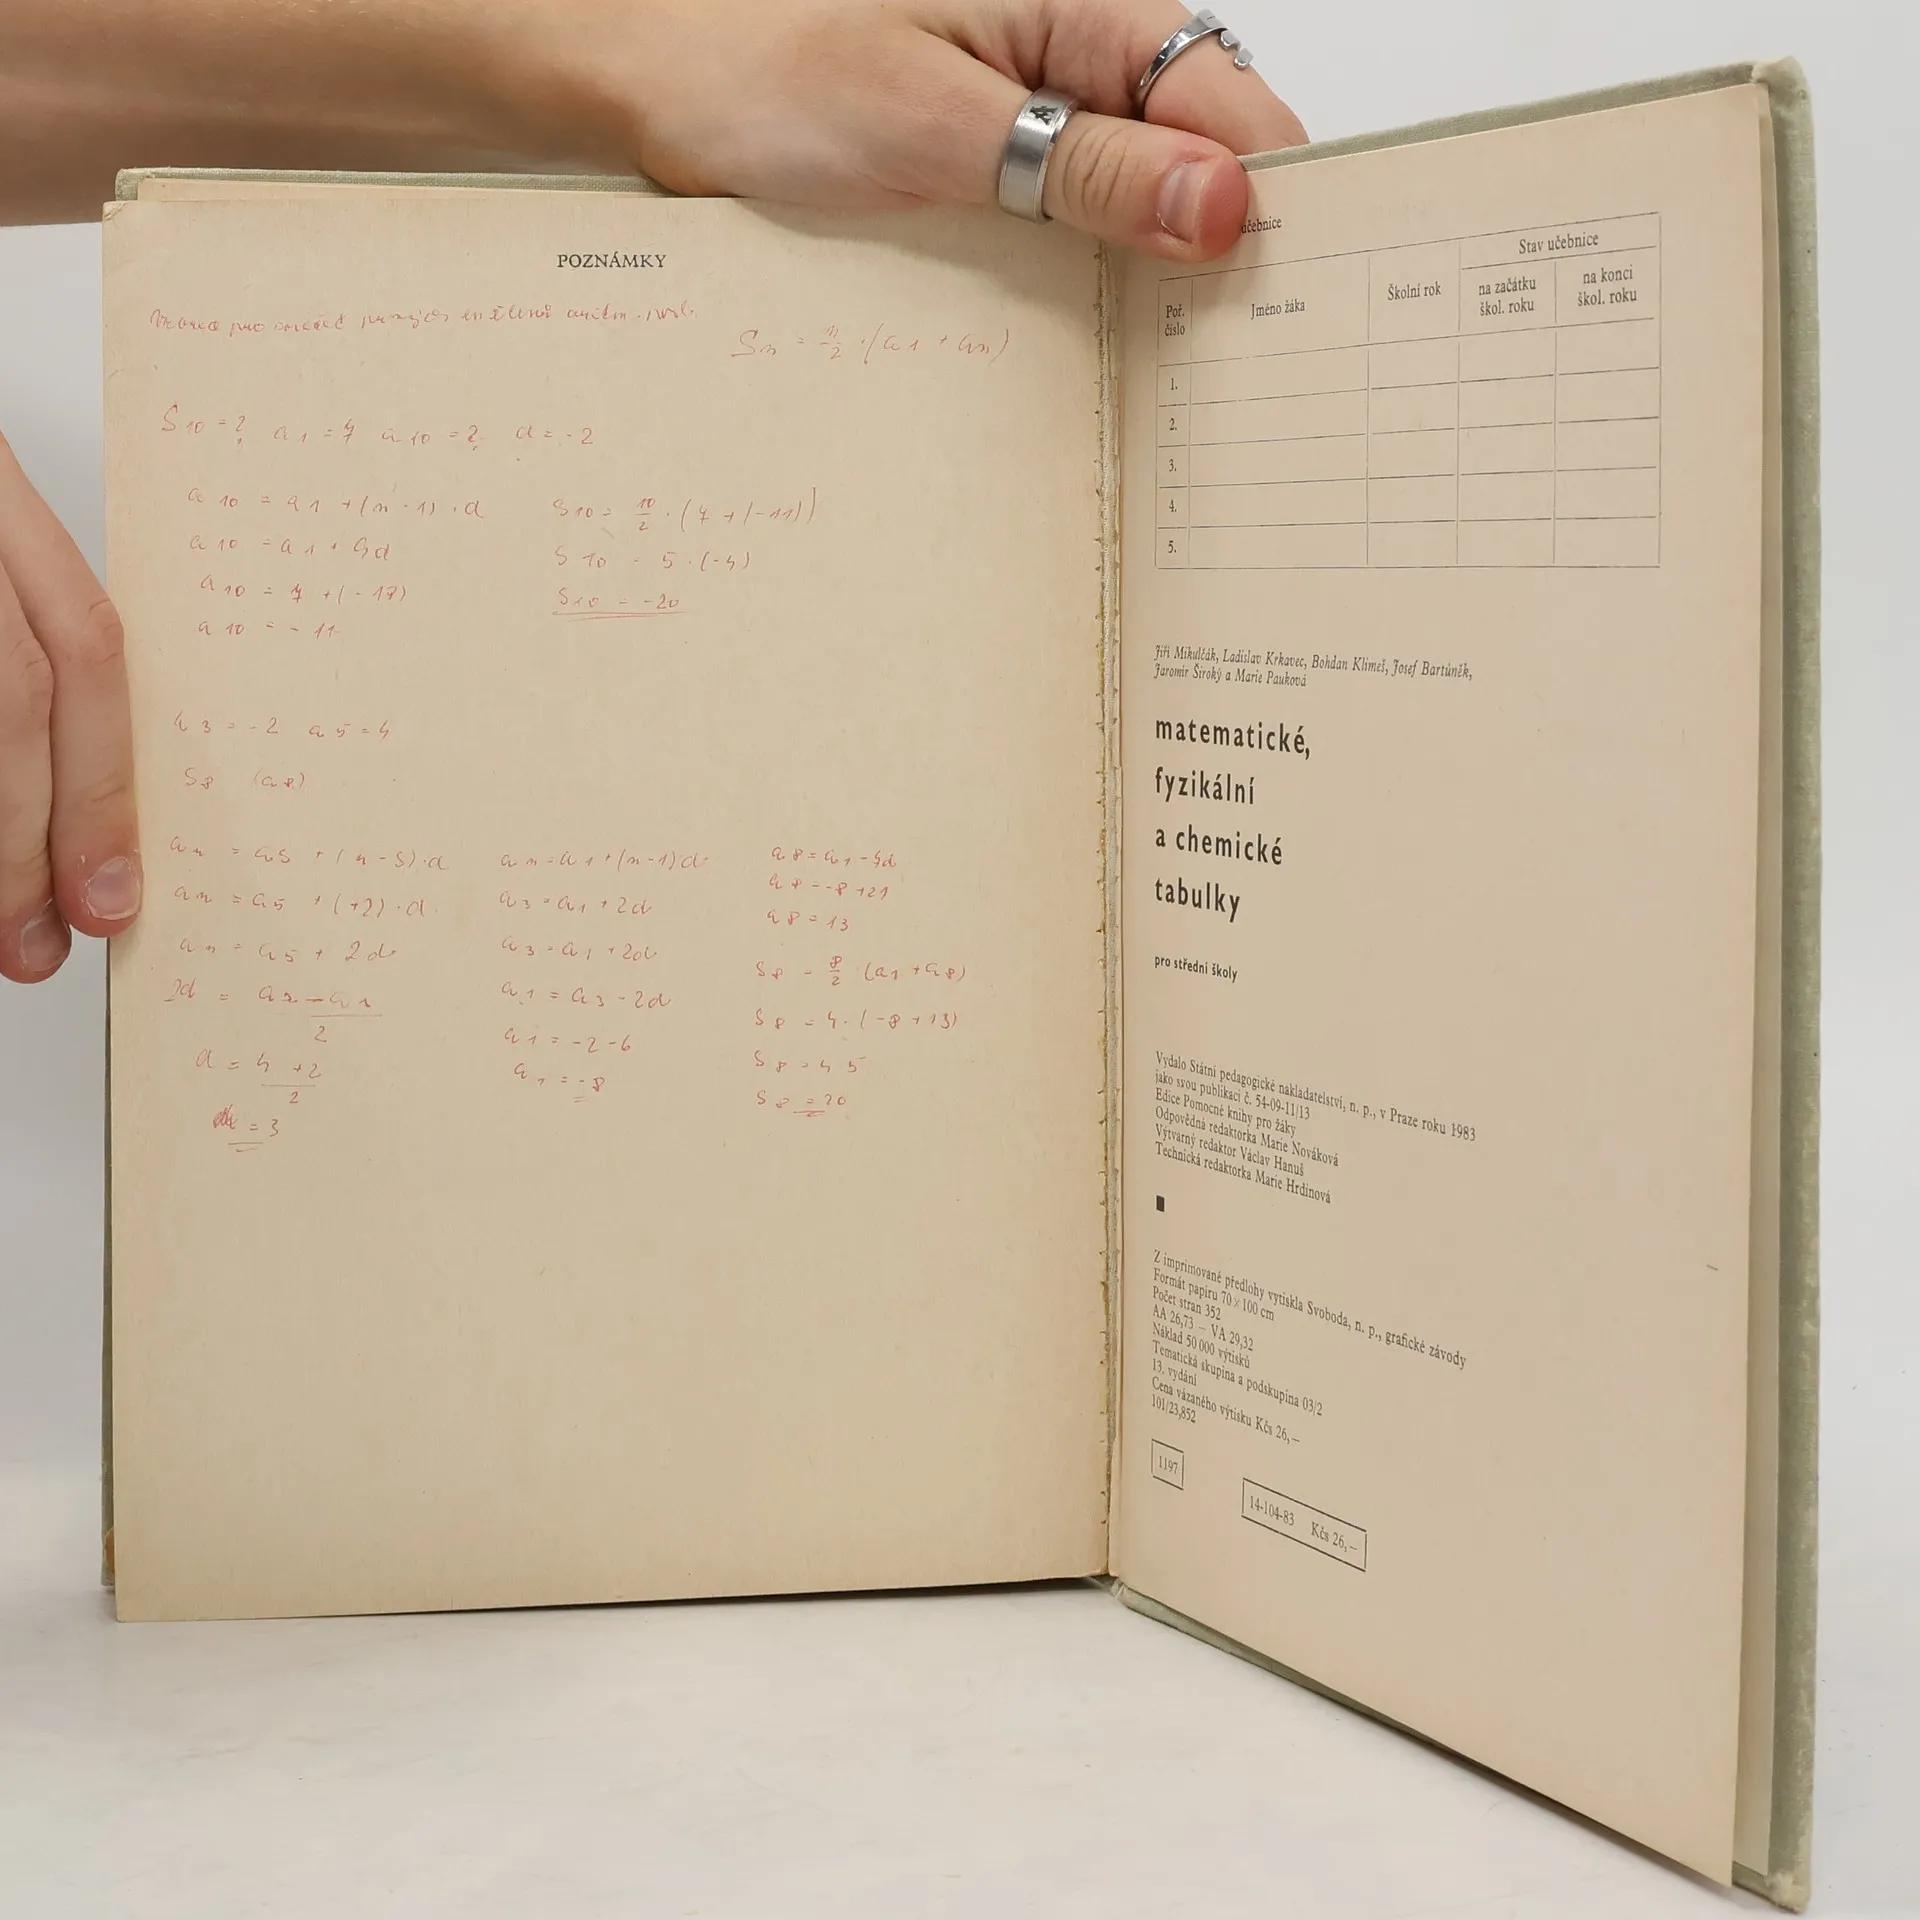 POZNÁMKY
Vzorec pro součet prvních n členů aritm. posl.
Sn = n/2 · (a1 + an)
S10 = ? a1 = 7 a10 = ? d = -2
a10 = a1 + (n - 1) · d
a10 = a1 + 9d
a10 = 7 + (-18)
a10 = - 11
S10 = 10/2 · (7 + (-11))
S10 = 5 · (-4)
S10 = -20
a3 = -2 a5 = 4
S8 (a8)
an = as + (n - s) · d
an = a5 + (+2) · d
an = a5 + 2d
2d =
2
d = 4 +2
2
= 3
an = a1 + (n-1)d
a3 = a1 + 2d
a3 = a1 + 2d
a1 = a3 - 2d
a1 = -2 -6
a1 = -8
a8 = a1 - 7d
a8 = -8 +21
a8 = 13
S8 = 8/2 (a1 + a8)
S8 = 4 · (-8 + 13)
S8 = 4 5
S8 = 20
učebnice
Poř. číslo Jméno žáka Školní rok Stav učebnice
na začátku škol. roku na konci škol. roku
1.
2.
3.
4.
5.
Jiří Mikulčák, Ladislav Krkavec, Bohdan Klimeš, Josef Bartůněk,
Jaromír Široký a Marie Pauková
matematické,
fyzikální
a chemické
tabulky
pro střední školy
Vydalo Státní pedagogické nakladatelství, n. p., v Praze roku 1983
jako svou publikaci č. 54-09-11/13
Edice Pomocné knihy pro žáky
Odpovědná redaktorka Marie Nováková
Výtvarný redaktor Václav Hanuš
Technická redaktorka Marie Hrdinová
Z imprimované předlohy vytiskla Svoboda, n. p., grafické závody
Formát papíru 70 × 100 cm
Počet stran 352
AA 26,73 – VA 29,32
Náklad 50 000 výtisků
Tematická skupina a podskupina 03/2
13. vydání
Cena vázaného výtisku Kčs 26,–
101/23,852
1197
14-104-83 Kčs 26,–